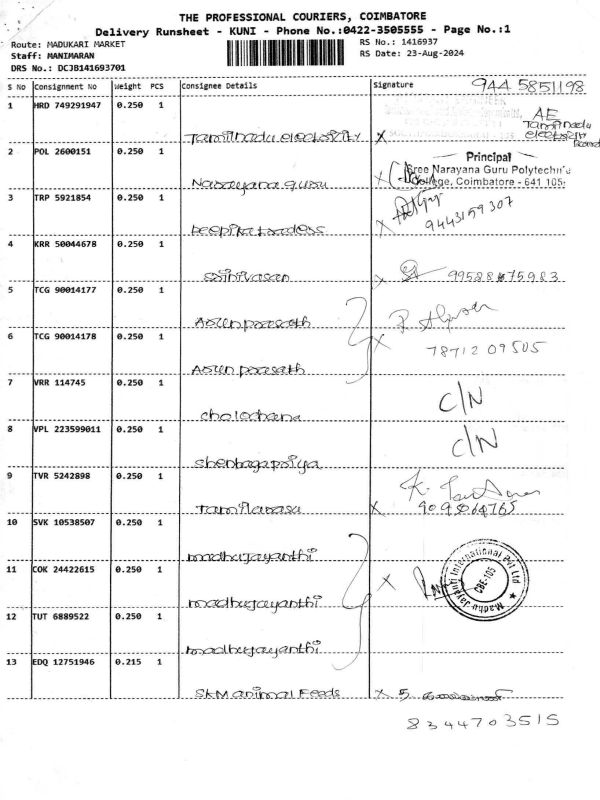 THE PROFESSIONAL COURIERS, COIMBATORE
Delivery Runsheet - KUNI - Phone No.:0422-3505555 - Page No.:1
Route: MADUKARI MARKET
Staff: MANIMARAN
DRS No.: DCJB141693701
RS No.: 1416937
RS Date: 23-Aug-2024
S No Consignment No Weight PCS Consignee Details Signature 944 5851198
1 HRD 749291947 0.250 1 Tamilnadu electricity x AE Tamilnadu electricity
2 POL 2600151 0.250 1 Narayana guru x
Principal
Sree Narayana Guru Polytechnic
College, Coimbatore - 641 105.
3 TRP 5921854 0.250 1 Deepika traders x 9443159307
4 KRR 50044678 0.250 1 Srinivasan x 99528 75983
5 TCG 90014177 0.250 1 Arun prasath
6 TCG 90014178 0.250 1 Arun prasath x 78712 09505
7 VRR 114745 0.250 1 C/N
8 VPL 223599011 0.250 1 Shenbagapriya C/N
9 TVR 5242898 0.250 1 Tamilarasu x
10 SVK 10538507 0.250 1 madhujayanthi
11 COK 24422615 0.250 1 madhujayanthi x
Madhu Jayanti International Pvt Ltd
CBE-105
12 TUT 6889522 0.250 1 madhujayanthi
13 EDQ 12751946 0.215 1 SKM animal Feeds x 5
8344703515